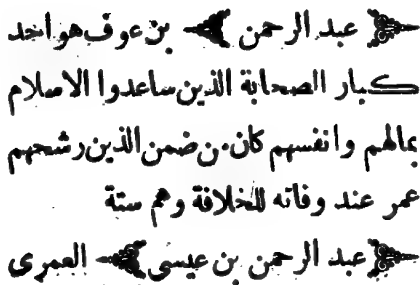 عبد الرحمن بن عوف هو احد
كبار الصحابة الذين ساعدوا الاسلام
بمالهم وانفسهم كان من ضمن الذين رشحهم
عمر عند وفاته للخلافة وهم ستة
عبد الرحمن بن عيسى العمرى